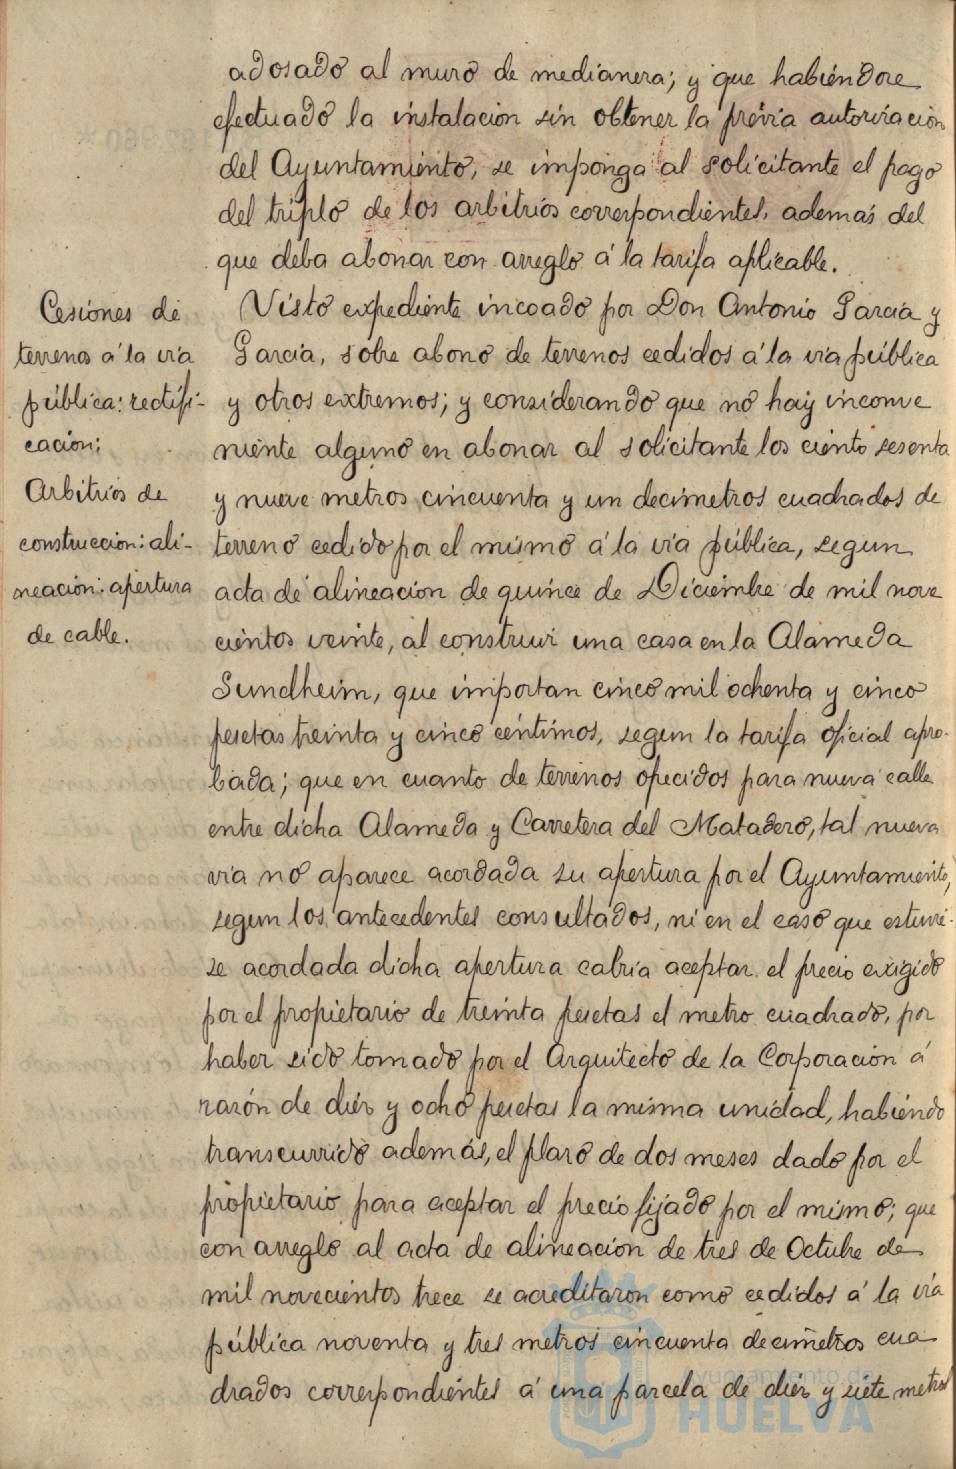 adosado al muro de medianera; y que habiéndore
efectuado la instalacion sin obtener la prévia autorización
del Ayuntamiento, se imponga al solicitante el pago
del triplo de los arbitrios correspondientes, además del
que deba abonar con arreglo á la tarifa aplicable.
Cesiones de
terrenos á la via
pública: rectifi-
cación:
Arbitrios de
construccion: ali-
neacion: apertura
de cable.
Visto expediente incoado por Don Antonio Garcia y
Garcia, sobre abono de terrenos cedidos á la via pública
y otros extremos; y considerando que no hay inconve
niente alguno en abonar al solicitante los ciento sesenta
y nueve metros cincuenta y un decimetros cuadrados de
terreno cedido por el mismo á la via pública, segun
acta de alineacion de quince de Diciembre de mil nove
cientos veinte, al construir una casa en la Alameda
Sundheim, que importan cinco mil ochenta y cinco
pesetas treinta y cinco céntimos, segun la tarifa oficial apro-
bada; que en cuanto de terrenos ofecidos para nueva calle
entre dicha Alameda y Carretera del Matadero, tal nueva
via no aparece acordada su apertura por el Ayuntamiento,
segun los antecedentes consultados, ni en el caso que estuvie-
se acordada dicha apertura cabria aceptar el precio exigido
por el propietario de treinta pesetas el metro cuadrado, por
haber sido tomado por el Arquitecto de la Corporacion á
razón de diez y ocho pesetas la misma unidad, habiendo
transcurrido además, el plazo de dos meses dado por el
propietario para aceptar el precio fijado por el mismo; que
con arreglo al acta de alineación de tres de Octubre de
mil novecientos trece se acreditaron como cedidos á la via
pública noventa y tres metros cincuenta decimetros cua
drados correspondientes á una parcela de diez y siete metros
Ayuntamiento de
HUELVA